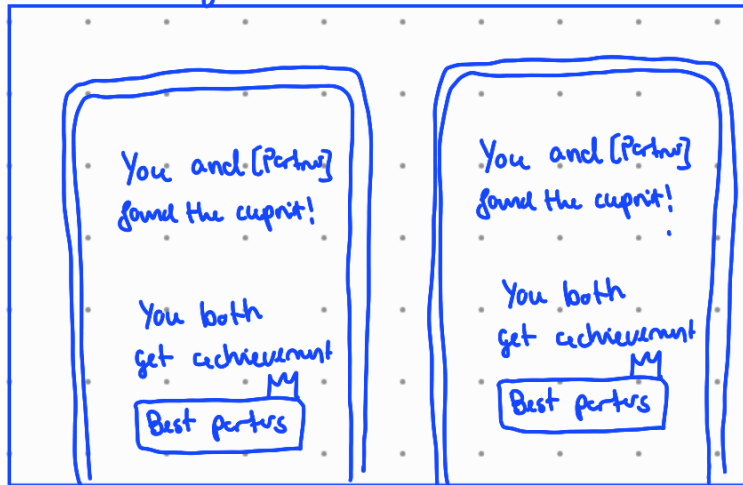 You and [Partner]
found the cuprit!
You both
get achievement
Best parters
You and [Partner]
found the cuprit!
You both
get achievement
Best parters